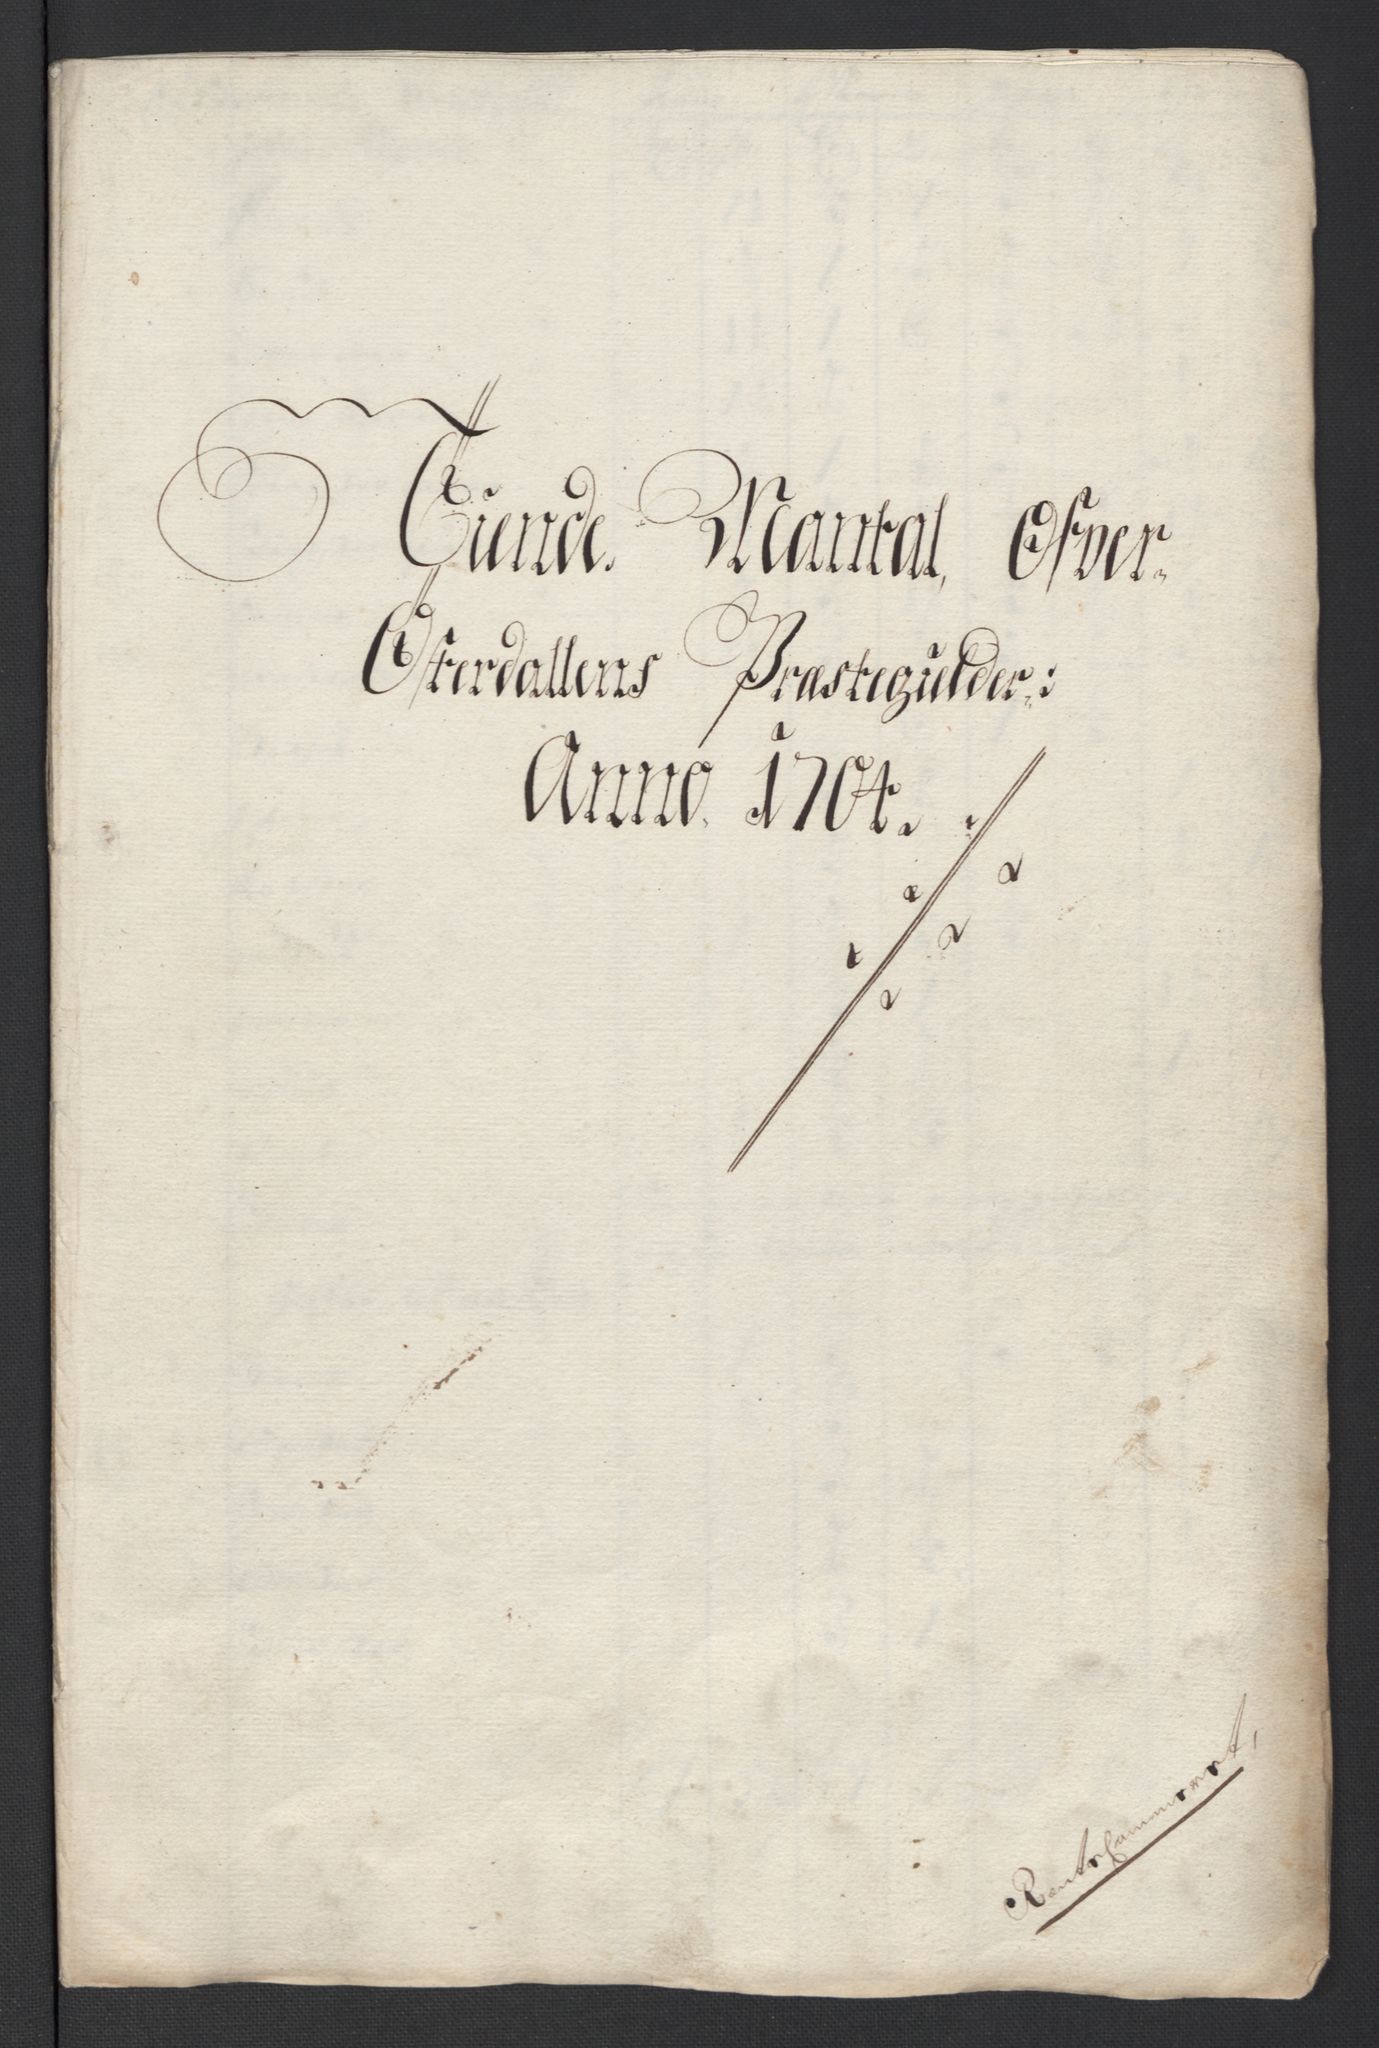 Tiende. Mantal, Ofver-
Østerdallens Præstegulder:
Anno. 1704.
Rentekammeret,